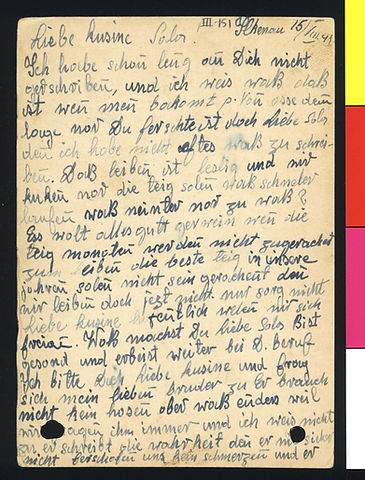 III-151
Ilkenau 15/
Liebe kusine Sala
Ich habe schon leng an Dich nicht
geschriben, und ich weis waß daß
ist wen men bakomt
lange nor Du ferschteist doch liebe Sala
den ich habe nicht waß zu schrei-
ben. Daß leiben ist lestig und mir
kuken nor die teig solen waß schneler
laufen waß neinter nor zu waß?
Es wolt alles gutt gewein wen die
teig monaten werden nicht zugerechnet
zum leiben die beste teig in unsere
johren solen nicht sein gerechent den
mir leiben doch jezt nicht nur sorg nicht
liebe kusine wen mir sich
freien. Waß machst Du liebe Sala Bist
gesond und erbeist weiter bei D. Beruf
Ich bitte Dich liebe kusine und frag
sich mein lieben bruder zu Er brauch
nicht kein hosen ober waß enders weil
sagen ihm immer und ich weis nicht
zu er schreibt die wahrheit den er
nicht uns kein schmerzen und er